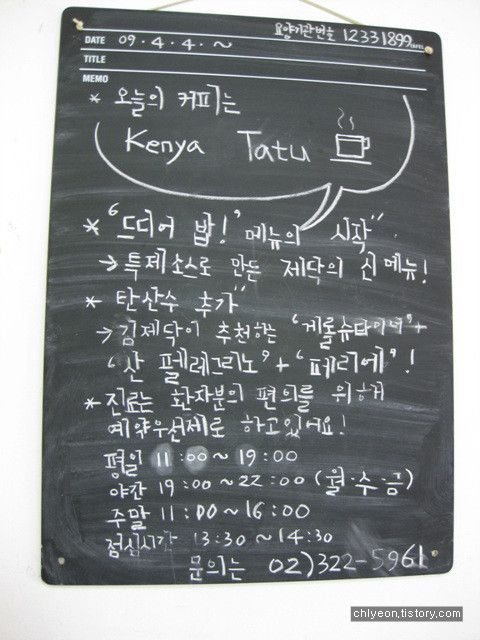 요양기관번호 12331899
DATE 09. 4. 4. ~
TITLE
MEMO
* 오늘의 커피는
Kenya Tatu
* "드디어 밥!" 메뉴의 시작"
→ 특제소스로 만든 제닥의 신메뉴!
* 탄산수 추가"
→ 김제닥이 추천하는 "게롤슈타이너"+
"산 펠레그리노" + "페리에"!
* 진료는 환자분의 편의를 위해
예약우선제로 하고있어요!
평일 11:00 ~ 19:00
야간 19:00 ~ 22:00 (월·수·금)
주말 11:00 ~ 16:00
점심시간 13:30 ~ 14:30
문의는 02)322-5961
chlyeon.tistory.com